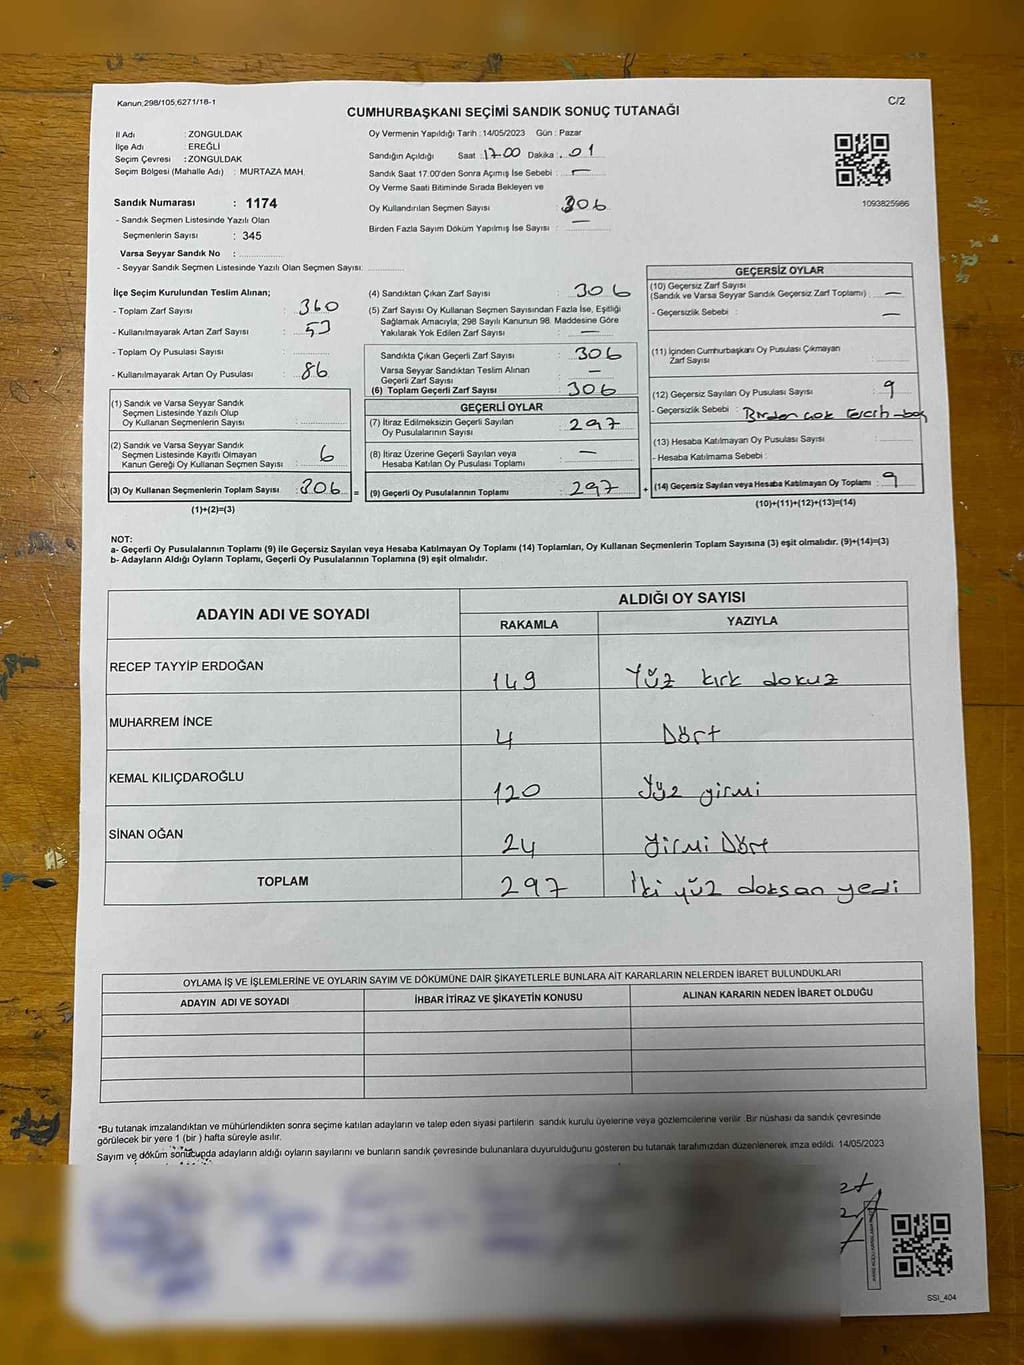 Kanun,298/105,6271/18-1
C/2
CUMHURBAŞKANI SEÇİMİ SANDIK SONUÇ TUTANAĞI
İl Adı : ZONGULDAK
İlçe Adı : EREĞLİ
Seçim Çevresi : ZONGULDAK
Seçim Bölgesi (Mahalle Adı) : MURTAZA MAH.
Oy Vermenin Yapıldığı Tarih : 14/05/2023 Gün : Pazar
Sandığın Açıldığı Saat : 17.00 Dakika : 01
Sandık Saat 17:00'den Sonra Açımış İse Sebebi : —
Oy Verme Saati Bitiminde Sırada Bekleyen ve
Oy Kullandırılan Seçmen Sayısı : 306
Birden Fazla Sayım Döküm Yapılmış İse Sayısı : —
1093825986
Sandık Numarası : 1174
- Sandık Seçmen Listesinde Yazılı Olan
Seçmenlerin Sayısı : 345
Varsa Seyyar Sandık No :
- Seyyar Sandık Seçmen Listesinde Yazılı Olan Seçmen Sayısı:
İlçe Seçim Kurulundan Teslim Alınan;
- Toplam Zarf Sayısı : 360
- Kullanılmayarak Artan Zarf Sayısı : 53
- Toplam Oy Pusulası Sayısı :
- Kullanılmayarak Artan Oy Pusulası : 86
(1) Sandık ve Varsa Seyyar Sandık
Seçmen Listesinde Yazılı Olup
Oy Kullanan Seçmenlerin Sayısı :
(2) Sandık ve Varsa Seyyar Sandık
Seçmen Listesinde Kayıtlı Olmayan
Kanun Gereği Oy Kullanan Seçmen Sayısı : 6
(3) Oy Kullanan Seçmenlerin Toplam Sayısı : 306 =
(1)+(2)=(3)
(4) Sandıktan Çıkan Zarf Sayısı : 306
(5) Zarf Sayısı Oy Kullanan Seçmen Sayısından Fazla İse, Eşitliği
Sağlamak Amacıyla; 298 Sayılı Kanunun 98. Maddesine Göre
Yakılarak Yok Edilen Zarf Sayısı : —
Sandıkta Çıkan Geçerli Zarf Sayısı : 306
Varsa Seyyar Sandıktan Teslim Alınan
Geçerli Zarf Sayısı : —
(6) Toplam Geçerli Zarf Sayısı : 306
GEÇERLİ OYLAR
(7) İtiraz Edilmeksizin Geçerli Sayılan
Oy Pusulalarının Sayısı : 297
(8) İtiraz Üzerine Geçerli Sayılan veya
Hesaba Katılan Oy Pusulası Toplamı : —
(9) Geçerli Oy Pusulalarının Toplamı : 297 +
GEÇERSİZ OYLAR
(10) Geçersiz Zarf Sayısı
(Sandık ve Varsa Seyyar Sandık Geçersiz Zarf Toplamı) : —
- Geçersizlik Sebebi : —
(11) İçinden Cumhurbaşkanı Oy Pusulası Çıkmayan
Zarf Sayısı :
(12) Geçersiz Sayılan Oy Pusulası Sayısı : 9
- Geçersizlik Sebebi : Birden çok tercih
(13) Hesaba Katılmayan Oy Pusulası Sayısı :
- Hesaba Katılmama Sebebi :
(14) Geçersiz Sayılan veya Hesaba Katılmayan Oy Toplamı : 9
(10)+(11)+(12)+(13)=(14)
NOT:
a- Geçerli Oy Pusulalarının Toplamı (9) ile Geçersiz Sayılan veya Hesaba Katılmayan Oy Toplamı (14) Toplamları, Oy Kullanan Seçmenlerin Toplam Sayısına (3) eşit olmalıdır. (9)+(14)=(3)
b- Adayların Aldığı Oyların Toplamı, Geçerli Oy Pusulalarının Toplamına (9) eşit olmalıdır.
ADAYIN ADI VE SOYADI
ALDIĞI OY SAYISI
RAKAMLA YAZIYLA
RECEP TAYYİP ERDOĞAN 149 Yüz kırk dokuz
MUHARREM İNCE 4 Dört
KEMAL KILIÇDAROĞLU 120 Yüz yirmi
SİNAN OĞAN 24 yirmi Dört
TOPLAM 297 İki yüz doksan yedi
OYLAMA İŞ VE İŞLEMLERİNE VE OYLARIN SAYIM VE DÖKÜMÜNE DAİR ŞİKAYETLERLE BUNLARA AİT KARARLARIN NELERDEN İBARET BULUNDUKLARI
ADAYIN ADI VE SOYADI İHBAR İTİRAZ VE ŞİKAYETİN KONUSU ALINAN KARARIN NEDEN İBARET OLDUĞU
*Bu tutanak imzalandıktan ve mühürlendikten sonra seçime katılan adayların ve talep eden siyasi partilerin sandık kurulu üyelerine veya gözlemcilerine verilir. Bir nüshası da sandık çevresinde
görülecek bir yere 1 (bir ) hafta süreyle asılır.
Sayım ve döküm sonucunda adayların aldığı oyların sayılarını ve bunların sandık çevresinde bulunanlara duyurulduğunu gösteren bu tutanak tarafımızdan düzenlenerek imza edildi. 14/05/2023
SSI_404